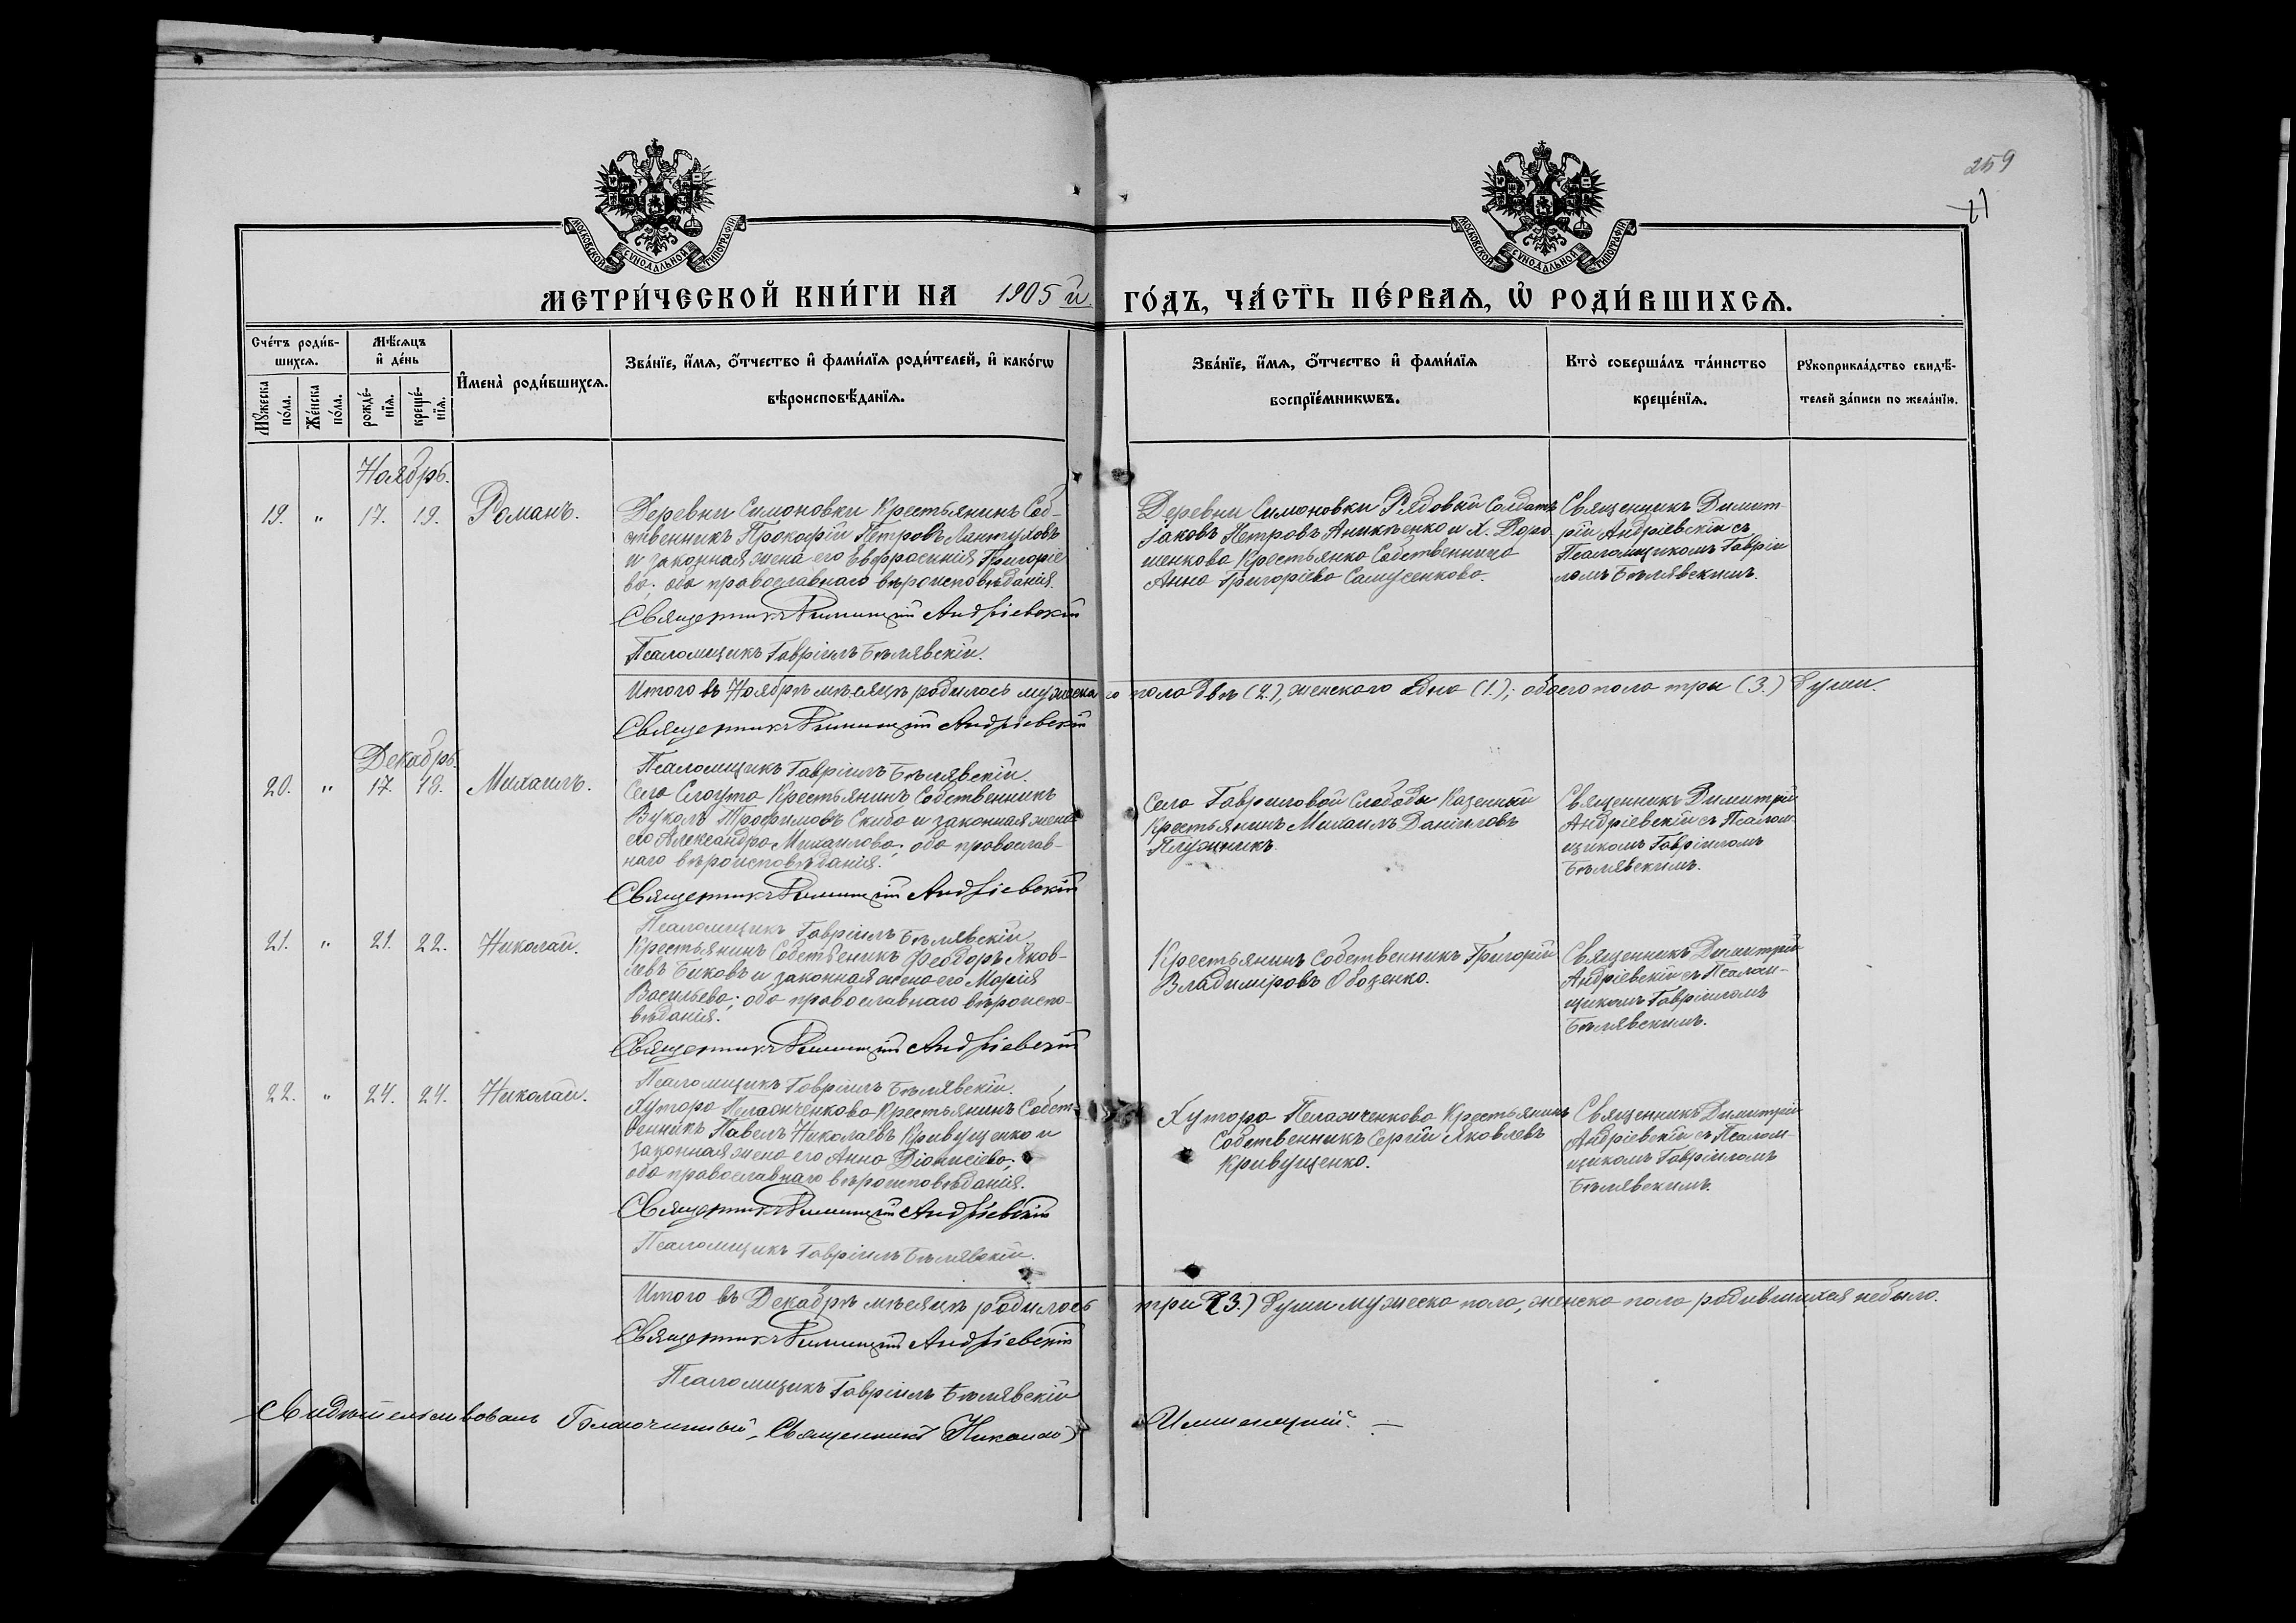 259
21
МОСКОВСКОЙ СѴНОДАЛЬНОЙ ТИПОГРАФІИ
МОСКОВСКОЙ СѴНОДАЛЬНОЙ ТИПОГРАФІИ
МЕТРИ́ЧЕСКОЙ КНИ́ГИ НА 1905 й ГО́ДЪ, ЧА́СТЬ ПЕ́РВАѦ, Ѡ҆ РОДИ́ВШИХСѦ.
Сче́тъ роди́в-
шихсѧ.
Мꙋ́жеска
по́ла.
Же́нска
по́ла.
Мѣ́сѧцъ
и҆ де́нь
рожде́-
нїѧ.
креще́-
нїѧ.
И҆мена̀ роди́вшихсѧ.
Зва́нїе, и҆́мѧ, ѻ҆́тчество и҆ фами́лїѧ роди́телей, и҆ како́гѡ
вѣроисповѣ́данїѧ.
Зва́нїе, и҆́мѧ, ѻ҆́тчество и҆ фами́лїѧ
воспрїе́мникѡвъ.
Кто̀ соверша́лъ та́инство
креще́нїѧ.
Рꙋкоприкла́дство свидѣ́-
телей за́писи по жела́нїю.
Ноябрь.
19. " 17. 19. Романъ.
Деревни Симоновки Крестьянинъ Соб-
ственникъ Прокофій Петровъ Лантуховъ
и законная жена его Евфросинія Григоріе
ва; оба православнаго вѣроисповѣданія.
Священникъ Димитрій Андріевскій
Псаломщикъ Гавріилъ Бѣлявскій.
Деревни Симоновки Рядовой Солдатъ
Іаковъ Петровъ Аникѣенко и Х. Доро
шенкова Крестьянка Собственница
Анна Григоріева Самусенкова.
Священникъ Димит-
рій Андріевскій съ
Псаломщикомъ Гавріи
ломъ Бѣлявскимъ.
Итого въ Ноябрѣ мѣсяцѣ родилось мужеска го пола двѣ (2.), женскаго одна (1.); обоего пола три (3.) души.
Священникъ Димитрій Андріевскій
Псаломщикъ Гавріилъ Бѣлявскій.
Декабрь.
20. " 17. 18. Михаилъ.
Села Слоута Крестьянинъ Собственникъ
Вуколъ Трофимовъ Скиба и законная жена
его Александра Михаилова; оба православ-
наго вѣроисповѣданія.
Священникъ Димитрій Андріевскій
Псаломщикъ Гавріилъ Бѣлявскій.
Села Гавриловой Слободы Казенный
Крестьянинъ Михаилъ Даніиловъ
Плужникъ.
Священникъ Димитрій
Андріевскій съ Псалом-
щикомъ Гавріиломъ
Бѣлявскимъ.
21. " 21. 22. Николай.
Крестьянинъ Собственикъ Феодоръ Яков-
левъ Быковъ и законная жена его Марія
Васильева; оба православнаго вѣроиспо-
вѣданія.
Священникъ Димитрій Андріевскій
Псаломщикъ Гавріилъ Бѣлявскій.
Крестьянинъ Собственникъ Григорій
Владиміровъ Обозенко.
Священникъ Димитрій
Андріевскій съ Псалом-
щикомъ Гавріиломъ
Бѣлявскимъ.
22. " 24. 24. Николай.
Хутора Пелагиченкова Крестьянинъ Собст-
венникъ Павелъ Николаевъ Кривущенко и
законная жена его Анна Діонисіева;
оба православнаго вѣроисповѣданія.
Священникъ Димитрій Андріевскій
Псаломщикъ Гавріилъ Бѣлявскій.
Хутора Пелагиченкова Крестьянинъ
Собственникъ Сергій Яковлевъ
Кривущенко.
Священникъ Димитрій
Андріевскій съ Псалом-
щикомъ Гавріиломъ
Бѣлявскимъ.
Итого въ Декабрѣ мѣсяцѣ родилось три (3.) души мужеска пола, женска пола родившихся небыло.
Священникъ Димитрій Андріевскій
Псаломщикъ Гавріилъ Бѣлявскій
Свидѣтельствовалъ Благочинный, Священникъ Николай